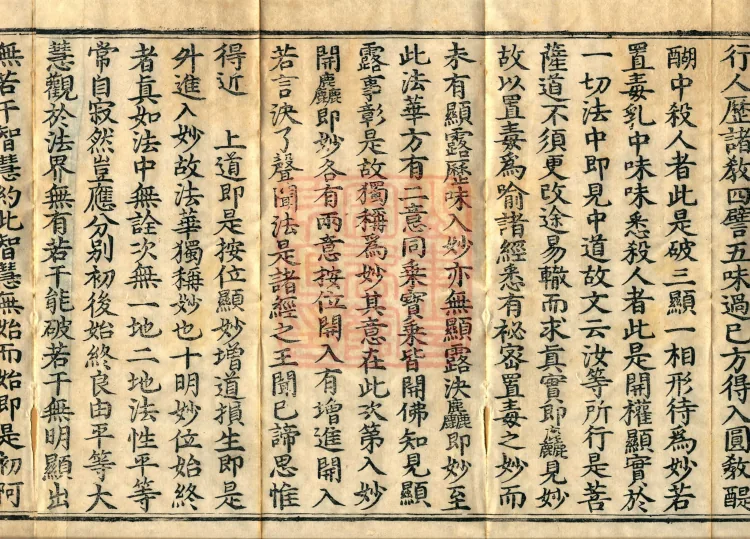 行人歷諸教四譬五味過已方得入圓教醍
醐中殺人者此是破三顯一相形待爲妙若
置毒乳中味味悉殺人者此是開權顯實於
一切法中即見中道故文云汝等所行是菩
薩道不須更改途易轍而求真實即麤見妙
故以置毒爲喻諸經悉有祕密置毒之妙而
未有顯露歷味入妙亦無顯露決麤即妙至
此法華方有二意同乘寶乘皆開佛知見顯
露事彰是故獨稱爲妙其意在此次第入妙
開麤即妙各有兩意按位開入有增進開入
若言決了聲聞法是諸經之王聞已諦思惟
得近　上道即是按位顯妙增道損生即是
外進入妙故法華獨稱妙也十明妙位始終
者真如法中無詮次無一地二地法性平等
常自寂然豈應分別初後始終良由平等大
慧觀於法界無有若干能破若干無明顯出
無若干智慧約此智慧無始而始即是初阿